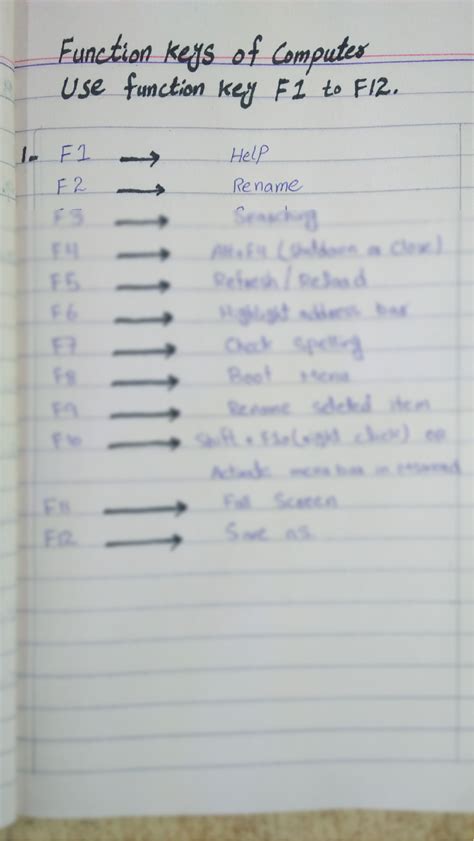 Function keys of Computer
Use function key F1 to F12.
1- F1 → Help
F2 → Rename
F3 → Searching
F4 → Alt+F4 (Shutdown or Close)
F5 → Refresh / Reload
F6 → Highlight address bar
F7 → Check Spelling
F8 → Boot Menu
F9 → Rename item
F10 → Shift + F10 (right click) or
menu bar in
F11 → Full Screen
F12 → Save as